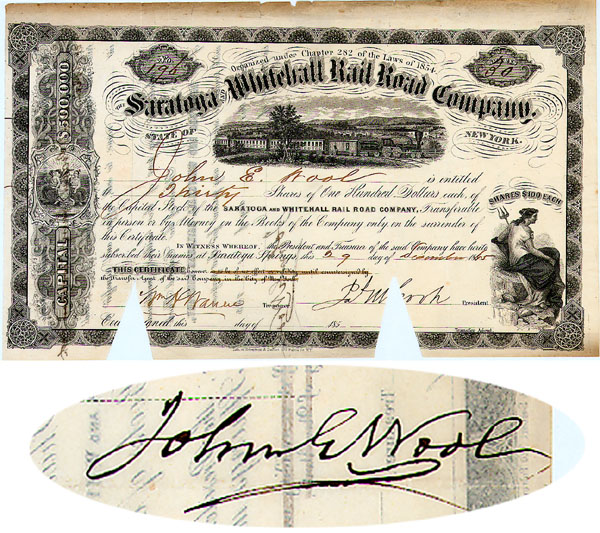 Organized under Chapter 282 of the Laws of 1854.
No
30
THE Saratoga and Whitehall Rail Road Company,
STATE OF NEW YORK.
CAPITAL $500,000
John E Wool is entitled
to Thirty Shares of One Hundred Dollars each, of
the Capital Stock of the SARATOGA AND WHITEHALL RAIL ROAD COMPANY, Transferable
in person or by Attorney on the Books of the Company only on the surrender of
this Certificate.
SHARES $100 EACH
IN WITNESS WHEREOF, the President and Treasurer of the said Company have hereto
subscribed their Names at Saratoga Springs this 29 day of December 1855
THIS CERTIFICATE
the Transfer Agent of the said Company in the City of New York
Treasurer
President
Countersigned, this day of 185
Transfer Agent
John E Wool